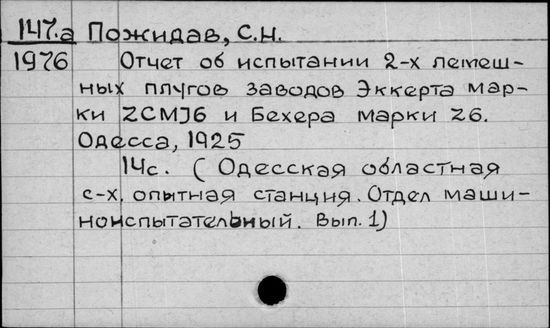 147.а Пожидав, С.Н.
1976 Отчет об испытании 2-х лемеш-
ных плугов заводов Эккерта мар-
ки ZCMJ6 и Бехера марки Z6.
Одесса, 1925
14с. (Одесская областная
с-х. опытная станция. Отдел маши-
ноиспытательный. Вып. 1)